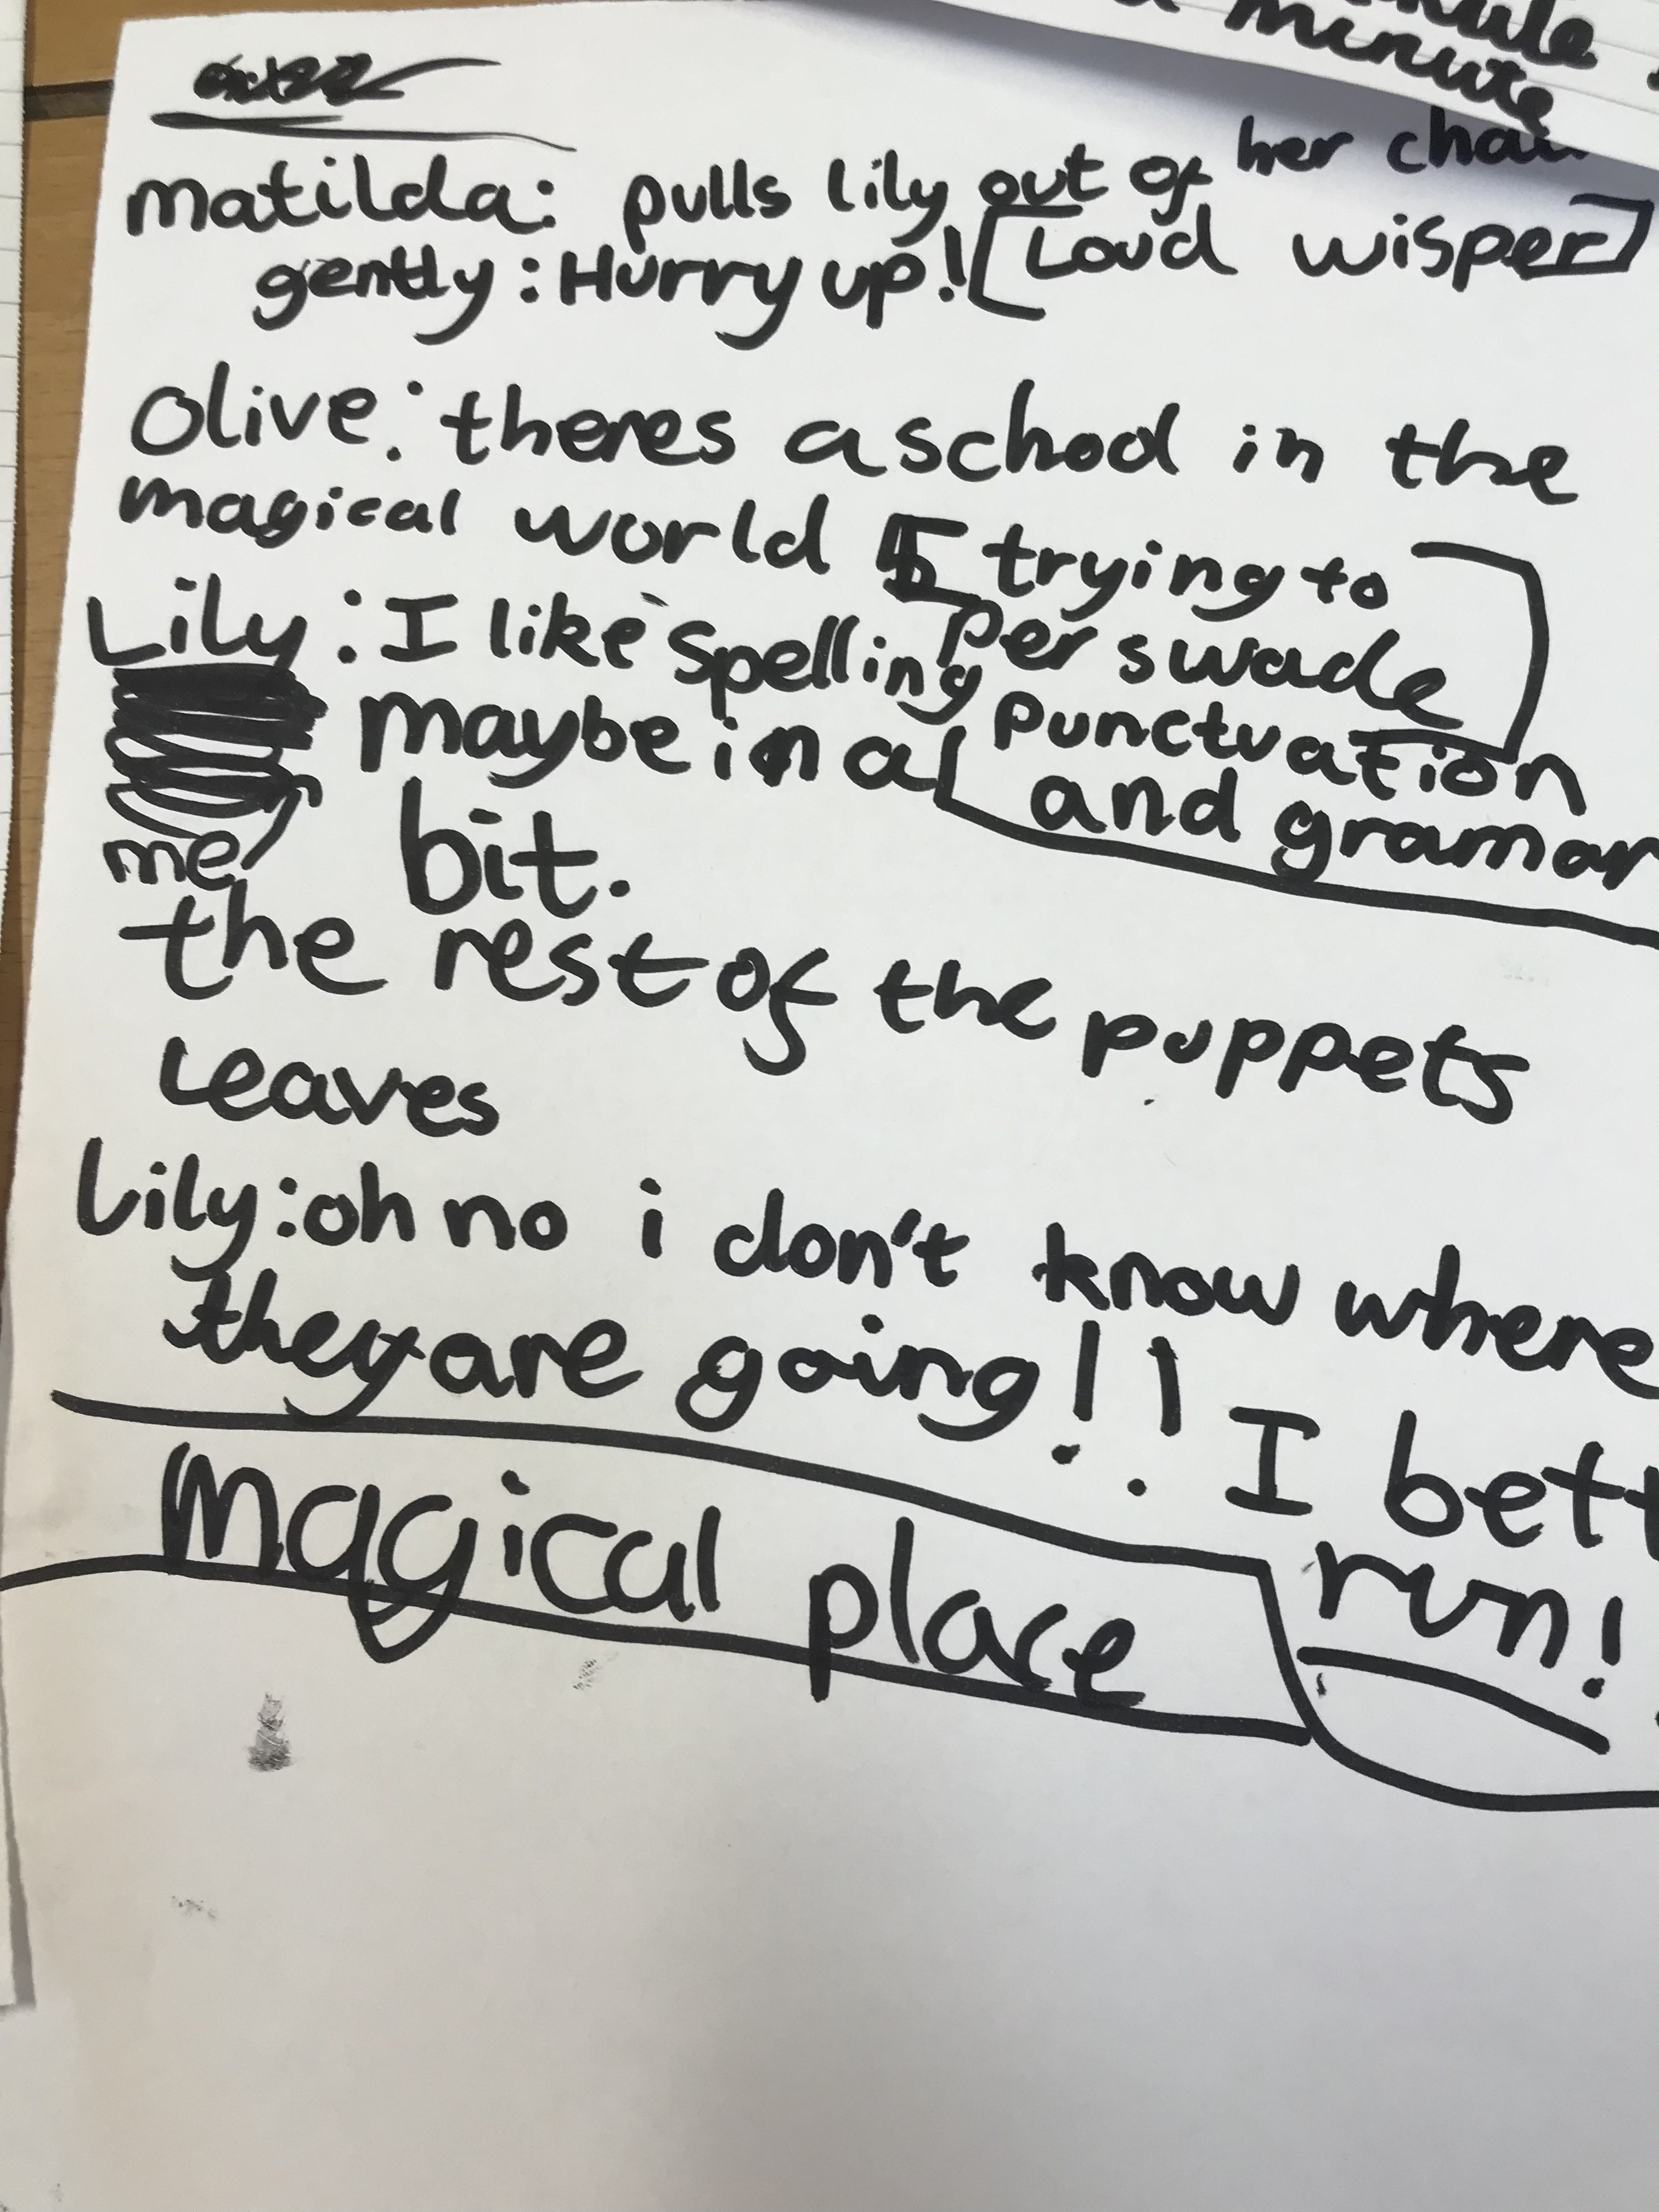 minute
matilda: pulls lily out of her chair
gently: Hurry up! [Loud wisper]
Olive: theres a school in the
magical world [trying to
perswade]
Lily: I like spelling punctuation
and gramar
maybe in a
me bit.
the rest of the puppets
leaves
Lily: oh no i don't know where
they are going!! I bett
run!
magical place